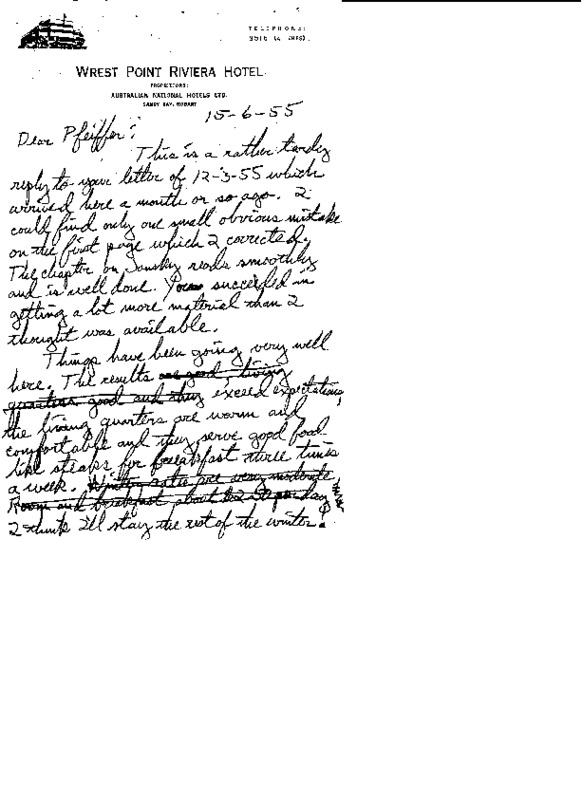 TELEPHONE:
WREST POINT RIVIERA HOTEL
PROPRIETORS:
AUSTRALIAN NATIONAL HOTELS LTD.
SANDY BAY, HOBART
15-6-55
Dear Pfeiffer:
This is a rather tardy
reply to your letter of 12-3-55 which
arrived here a month or so ago. I
could find only one small obvious mistake
on the first page which I corrected.
The chapter on Jansky reads smoothly
and is well done. You succeeded in
getting a lot more material than I
thought was available.
Things have been going very well
here. The results are good, living
quarters good and they exceed expectations,
the living quarters are warm and
comfortable and they serve good food
like steaks for breakfast three times
a week. Winter rates are very moderate,
Room and breakfast about day
I think I'll stay the rest of the winter.